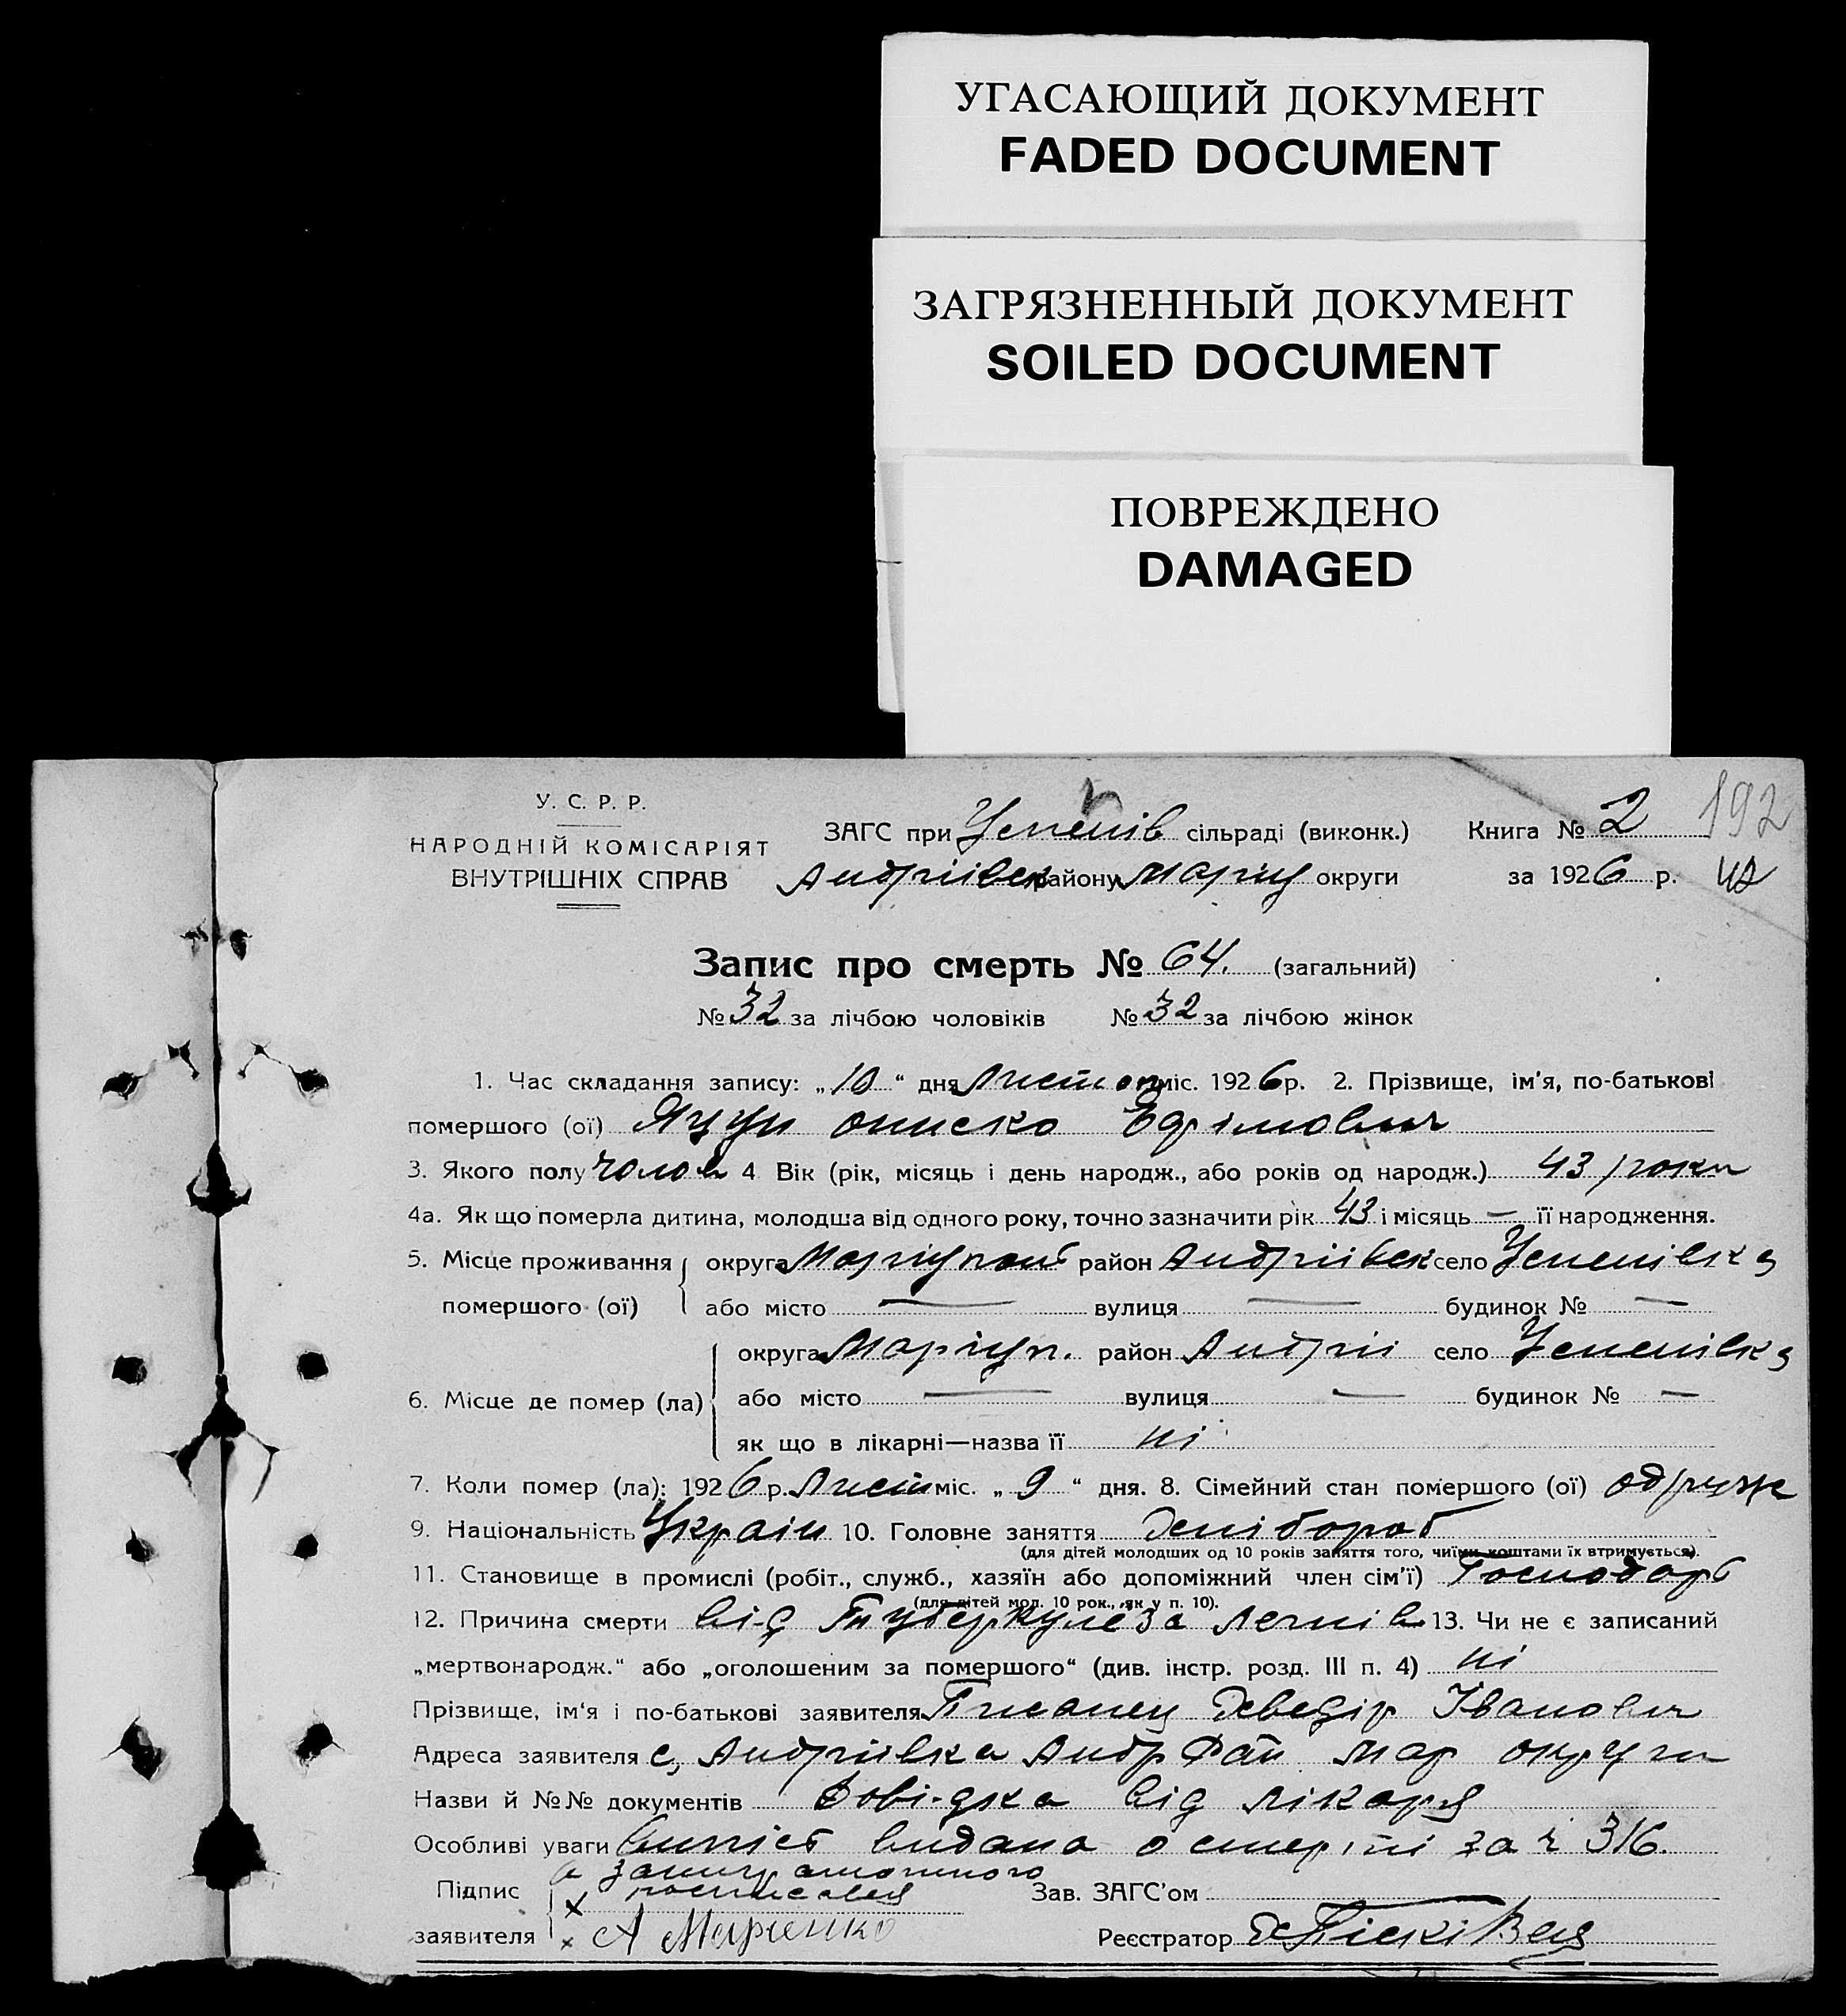 УГАСАЮЩИЙ ДОКУМЕНТ
FADED DOCUMENT
ЗАГРЯЗНЕННЫЙ ДОКУМЕНТ
SOILED DOCUMENT
ПОВРЕЖДЕНО
DAMAGED
192
У. С. Р. Р.
НАРОДНІЙ КОМІСАРІЯТ
ВНУТРІШНІХ СПРАВ
ЗАГС при Успенів сільраді (виконк.) Книга № 2
Андріівск району Маріу округи за 1926 р.
Запис про смерть № 64. (загальний)
№ 32 за лічбою чоловіків № 32 за лічбою жінок
1. Час складання запису: „10“ дня Листоп міс. 1926 р. 2. Прізвище, ім’я, по-батькові
помершого (ої) Яцун Описко Єфімович
3. Якого полу Чолов 4 Вік (рік, місяць і день народж., або років од народж.) 43 роки
4а. Як що померла дитина, молодша від одного року, точно зазначити рік 43 і місяць — її народження.
5. Місце проживання округа Маріупол район Андріівск село Успенівка
помершого (ої) або місто — вулиця — будинок № —
округа Маріуп. район Андріі село Успенівка
6. Місце де помер (ла) або місто — вулиця — будинок № —
як що в лікарні—назва її ні
7. Коли помер (ла): 1926 р. Лист міс. „9“ дня. 8. Сімейний стан помершого (ої) одруж
9. Національність Украін 10. Головне заняття
(для дітей молодших од 10 років заняття того, чиїми коштами їх втримується).
11. Становище в промислі (робіт., служб., хазяїн або допоміжний член сім’ї) Господарь
(для дітей мол. 10 рок., як у п. 10).
12. Причина смерти від Туберкулёза легнів 13. Чи не є записаний
„мертвонародж.“ або „оголошеним за помершого“ (див. інстр. розд. III п. 4) ні
Прізвище, ім‘я і по-батькові заявителя Іванович
Адреса заявителя с, Андріівка Андр Рай Мар округи
Назви й №№ документів Довідка від лікаря
Особливі уваги Випись видана о смерти за ч 316.
а
Підпис Зав. ЗАГС’ом
заявителя х А Марченко Реєстратор